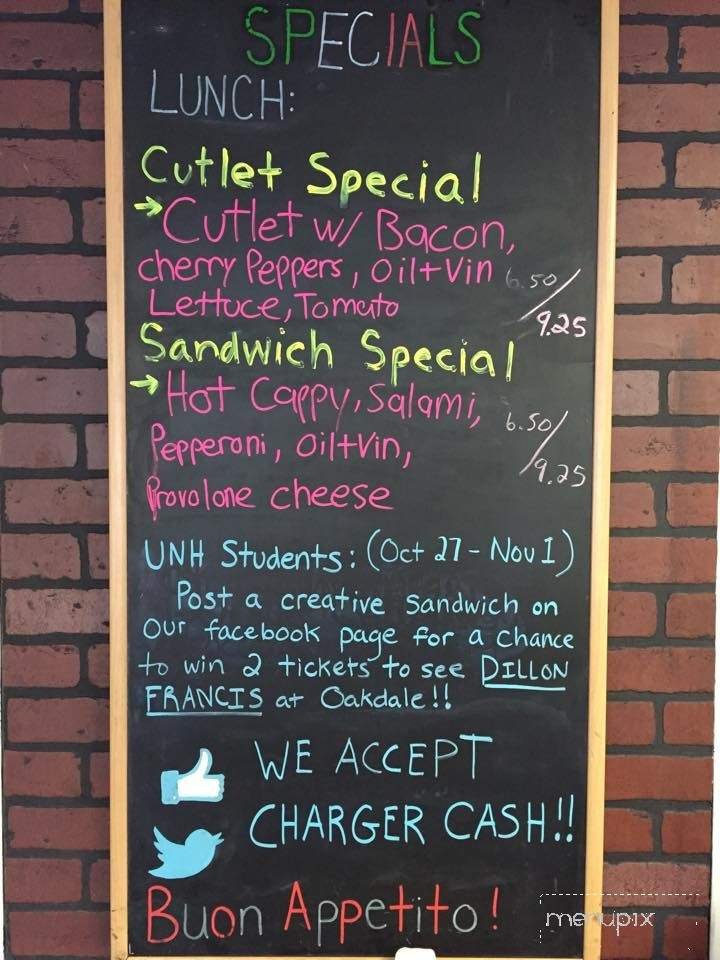 SPECIALS
LUNCH:
Cutlet Special
→Cutlet w/ Bacon,
cherry Peppers, Oil+Vin 6.50/
Lettuce, Tomato 9.25
Sandwich Special
→Hot Cappy, Salami, 6.50/
Pepperoni, Oil+Vin, 9.25
Provolone cheese
UNH Students: (Oct 27 - Nov 1)
Post a creative sandwich on
Our facebook page for a chance
to win 2 tickets to see DILLON
FRANCIS at Oakdale!!
WE ACCEPT
CHARGER CASH!!
Buon Appetito!
menupix